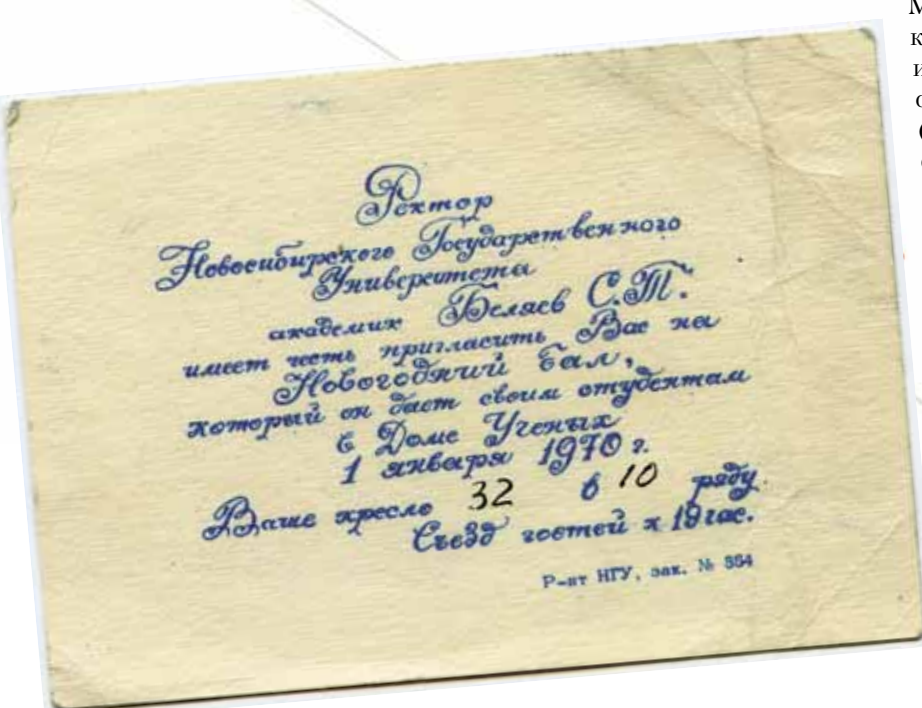 Ректор
Новосибирского Государственного
Университета
академик Беляев С.Т.
имеет честь пригласить Вас на
Новогодний бал,
который он дает своим студентам
в Доме Ученых
1 января 1970 г.
Ваше кресло 32 в 10 ряду.
Съезд гостей к 19 час.
Р-нт НГУ, зак. № 354